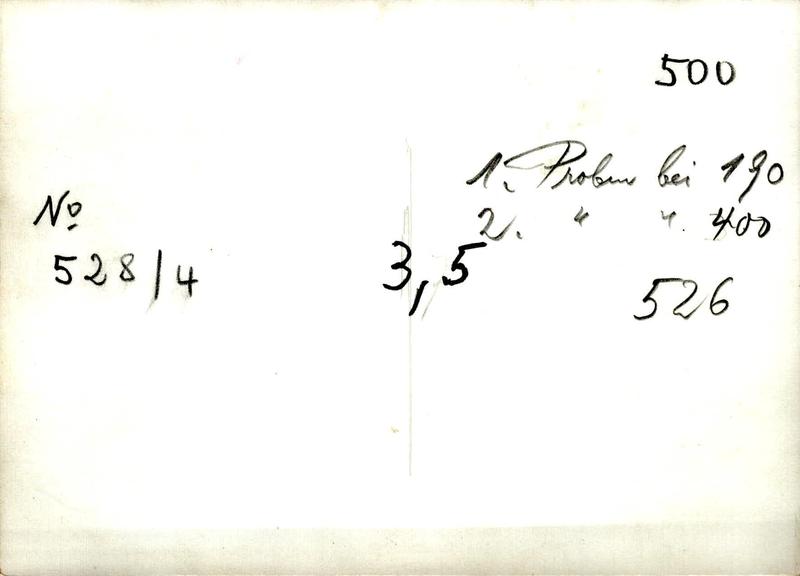 500
1. Proben bei 190
2. " " 400
No
528/4
3,5
526